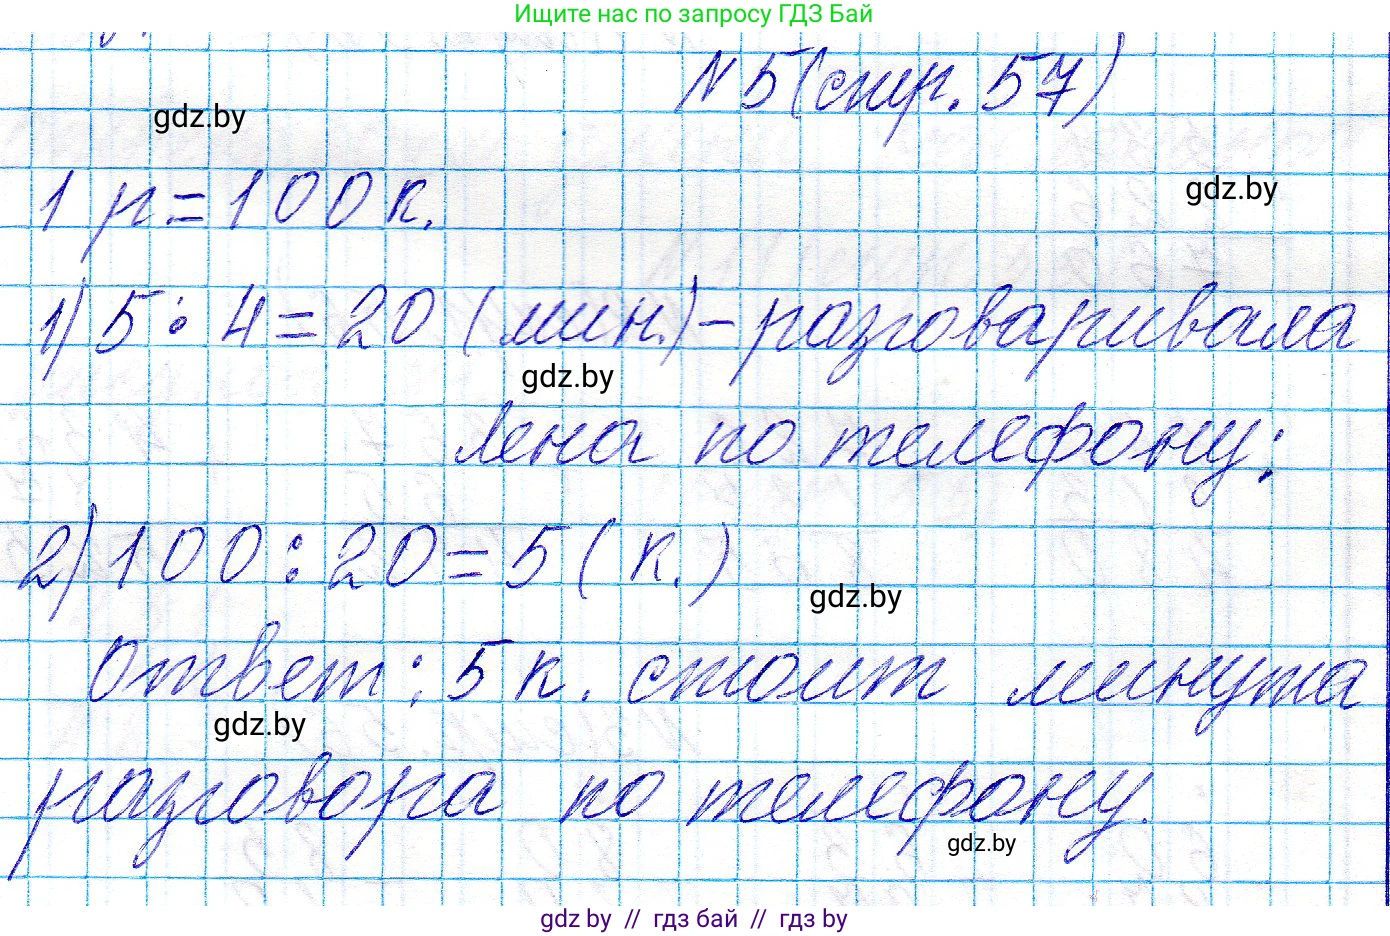 Ищите нас по запросу ГДЗ Бай
N 5 (стр. 57)
gdz.by
1 р = 100 к.
gdz.by
1) 5 : 4 = 20 (мин.) – разговаривала
gdz.by
Лена по телефону;
2) 100 : 20 = 5 ( к. )
gdz.by
Ответ: 5 к. стоит минута
gdz.by
разговора по телефону.
gdz.by
gdz.by // гдз бай // гдз by